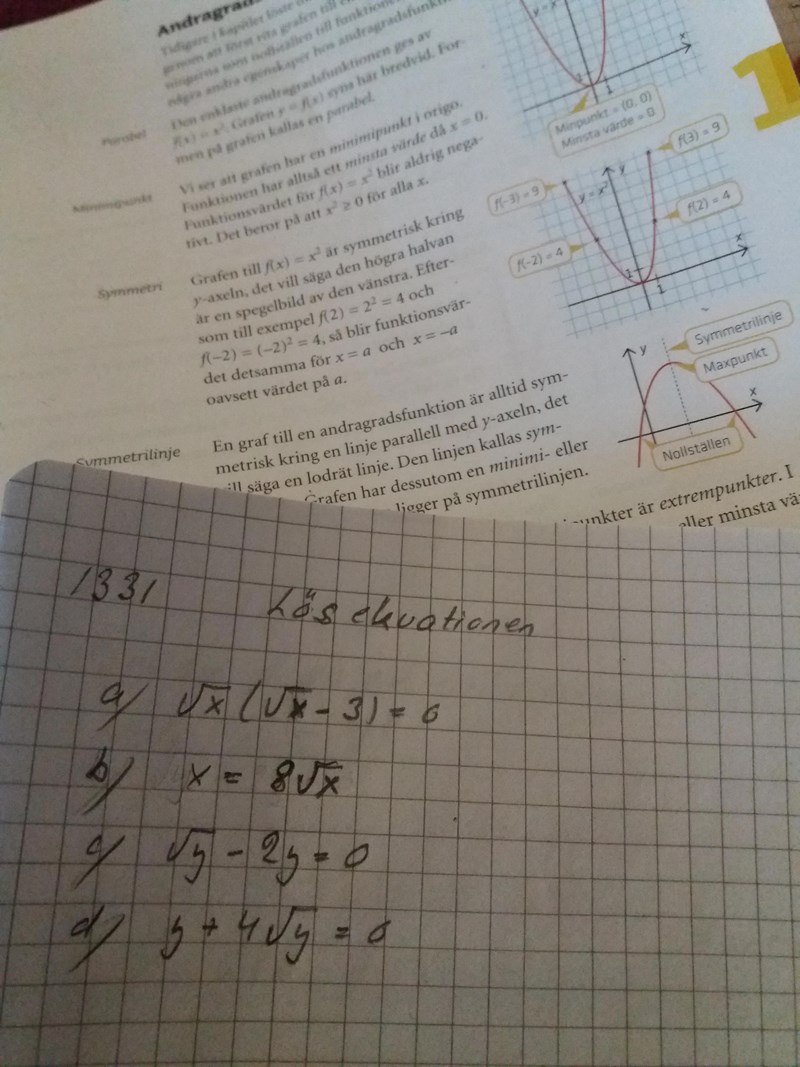 Andragrads
Tidigare i kapitlet löste
genom att först rita grafen till
ningarna som nollställen till funktionen
några andra egenskaper hos andragradsfunkt
Den enklaste andragradsfunktionen ges av
Parabel
f(x) = x². Grafen y = f(x) syns här bredvid. For-
men på grafen kallas en parabel.
y = x²
1
Minpunkt = (0, 0)
Minsta värde = 0
1
Minimipunkt
Vi ser att grafen har en minimipunkt i origo.
Funktionen har alltså ett minsta värde då x = 0.
Funktionsvärdet för f(x) = x² blir aldrig nega-
tivt. Det beror på att x² ≥ 0 för alla x.
f(-3) = 9
y = x²
y
f(3) = 9
f(-2) = 4
f(2) = 4
x
1
1
Symmetri
Grafen till f(x) = x² är symmetrisk kring
y-axeln, det vill säga den högra halvan
är en spegelbild av den vänstra. Efter-
som till exempel f(2) = 2² = 4 och
f(−2) = (−2)² = 4, så blir funktionsvär-
det detsamma för x = a och x = −a
oavsett värdet på a.
y
Symmetrilinje
Maxpunkt
x
Nollställen
Symmetrilinje
En graf till en andragradsfunktion är alltid sym-
metrisk kring en linje parallell med y-axeln, det
vill säga en lodrät linje. Den linjen kallas sym-
Grafen har dessutom en minimi- eller
ligger på symmetrilinjen.
punkter är extrempunkter. I
eller minsta vä
1331 Lös ekvationen
a) √x (√x - 3) = 0
b) x = 8√x
c) √y - 2y = 0
d) y + 4√y = 0